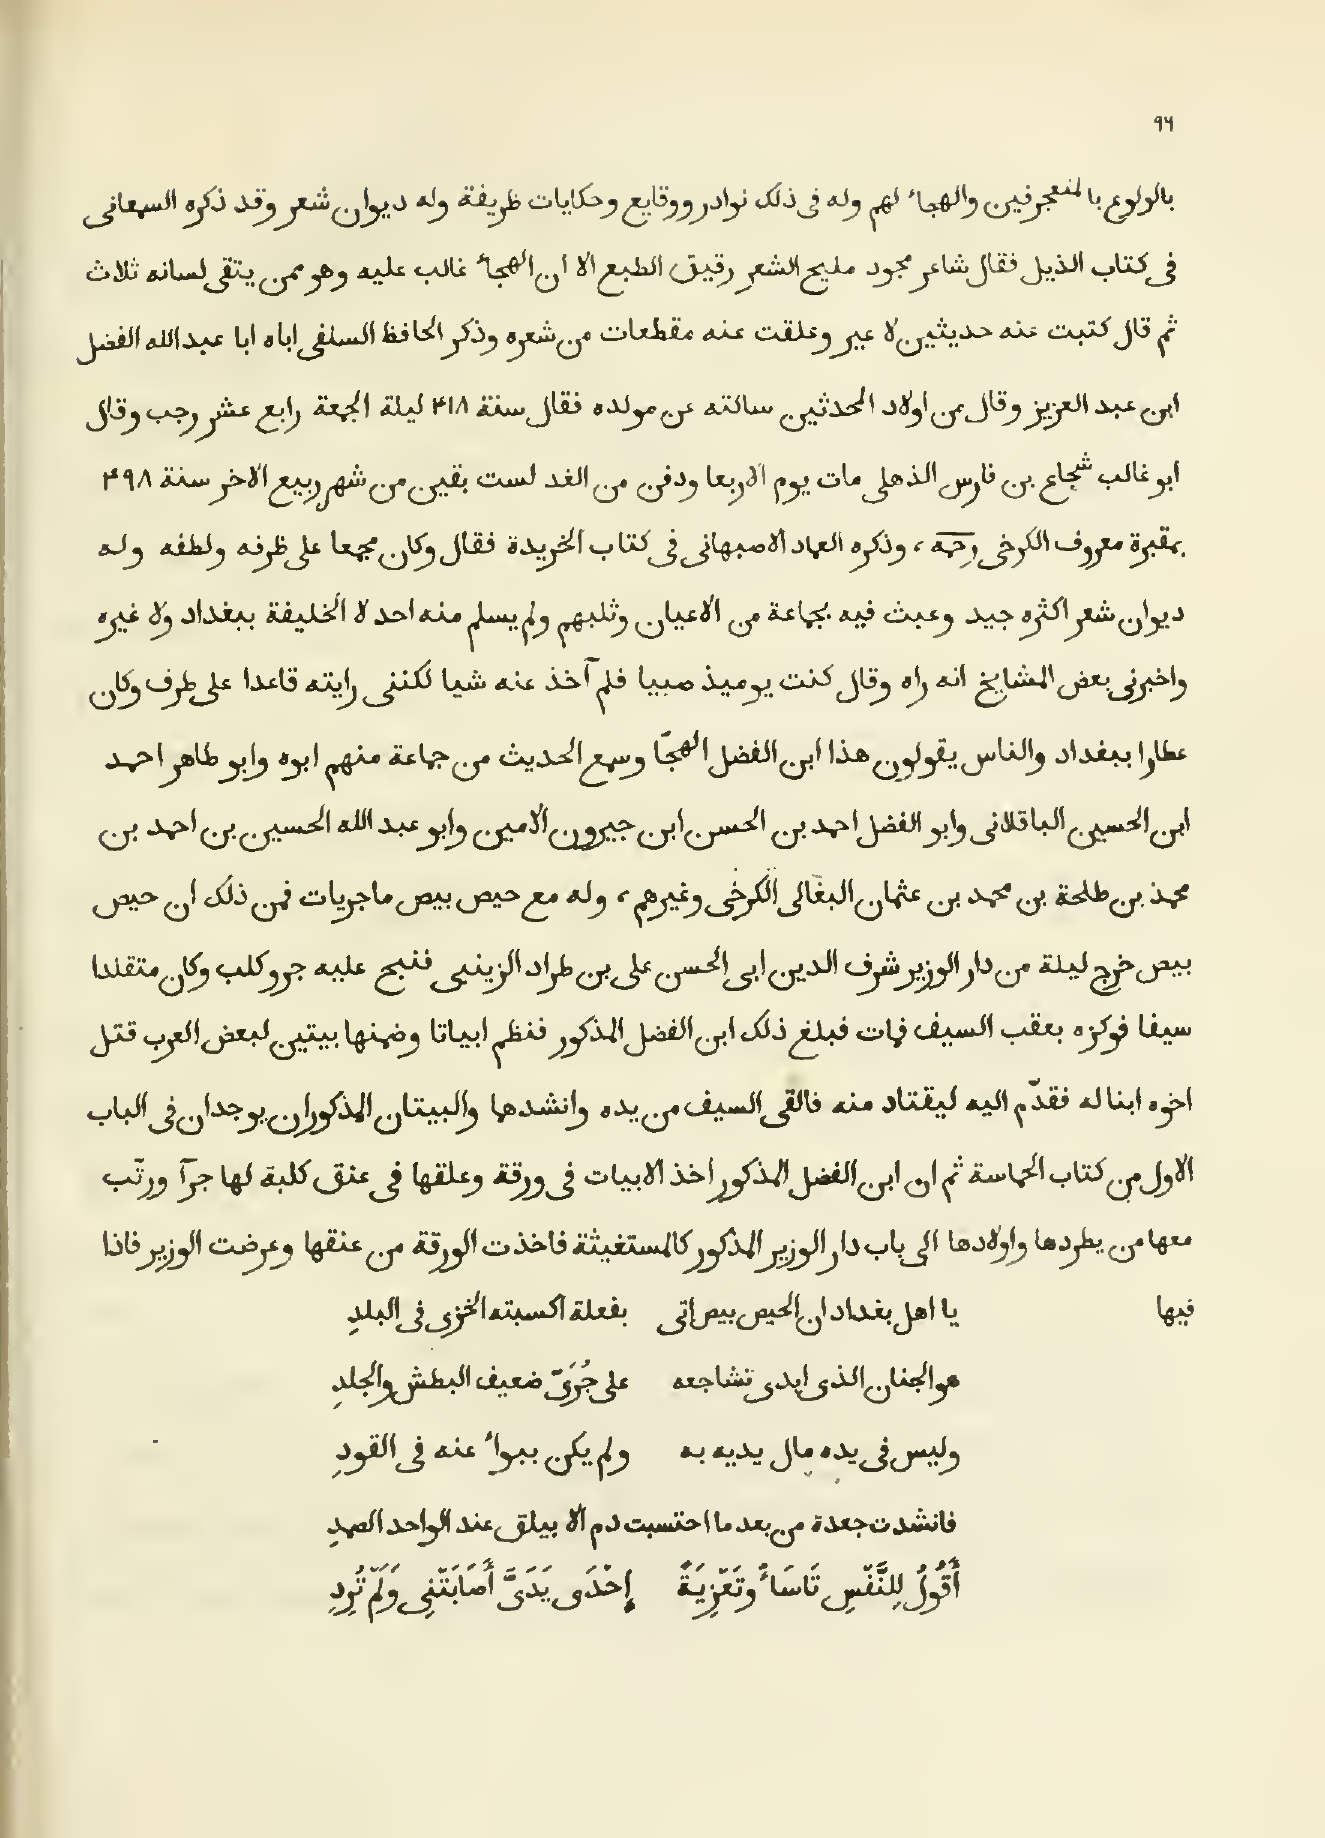 ٩٦
بالولوع بالمتعجرفين والهجاء لهم وله فى ذلك نوادر ووقايع وحكايات ظريفة وله ديوان شعر وقد ذكره السمعانى
فى كتاب الذيل فقال شاعر مجود مليح الشعر رقيق الطبع الا ان الهجاء غالب عليه وهو ممن يتقى لسانه ثلاث
ثم قال كتبت عنه حديثين لا غير وعلقت عنه مقطعات من شعره وذكر الحافظ السلفى اباه ابا عبد الله الفضل
ابن عبد العزيز وقال من اولاد المحدثين سالته عن مولده فقال سنة ۴۱۸ ليلة الجمعة رابع عشر رجب وقال
ابو غالب شجاع بن فارس الذهلى مات يوم الاربعا ودفن من الغد لست بقين من شهر ربيع الاخر سنة ۴۹۸
بمقبرة معروف الكرخى رحمه ، وذكره العماد الاصبهانى فى كتاب الخريدة فقال وكان مجمعا على ظرفه ولطفه وله
ديوان شعر اكثره جيد وعبث فيه بجماعة من الاعيان وثلبهم ولم يسلم منه احد لا الخليفة ببغداد ولا غيره
واخبرنى بعض المشايخ انه راه وقال كنت يوميذ صبيا فلم آخذ عنه شيا لكننى رايته قاعدا على طرف وكان
عطارا ببغداد والناس يقولون هذا ابن الفضل الهجّا وسمع الحديث من جماعة منهم ابوه وابو طاهر احمد
ابن الحسين الباقلانى وابو الفضل احمد بن الحسن ابن جيرون الامين وابو عبد الله الحسين بن احمد بن
محمذ بن طلحة بن محمد بن عثمان البغالى الكرخى وغيرهم ، وله مع حيص بيص ماجريات فمن ذلك ان حيص
بيص خرج ليلة من دار الوزير شرف الدين ابى الحسن على بن طراد الزينبى فنبح عليه جرو كلب وكان متقلدا
سيفا فوكزه بعقب السيف فمات فبلغ ذلك ابن الفضل المذكور فنظم ابياتا وضمنها بيتين لبعض العرب قتل
اخوه ابنا له فقدّم اليه ليقتاد منه فالقى السيف من يده وانشدها والبيتان المذكوران يوجدان فى الباب
الاول من كتاب الحماسة ثم ان ابن الفضل المذكور اخذ الابيات فى ورقة وعلقها فى عنق كلبة لها جرآ ورتّب
معها من يطردها واولادها الى باب دار الوزير المذكور كالمستغيثة فاخذت الورقة من عنقها وعرضت الوزير فاذا
فيها يا اهل بغداد ان الحيص بيص اتى بفعلة اكسبته الخزى فى البلدِ
هو الجنان الذى ابدى تشاجعه على جُرَىّ ضعيف البطش والجلدِ
وليس فى يده مال يديه به ولم يكن ببواء عنه فى القودِ
فانشدت جعدة من بعد ما احتسبت دم الا بيلق عند الواحد الصمدِ
أَقُولُ لِلنَّفْسِ تَاسَاءً وَتَعْزِيَةً إِحْدَى يَدَىَّ أَصَابَتْنِى وَلَمْ تُرِدِ